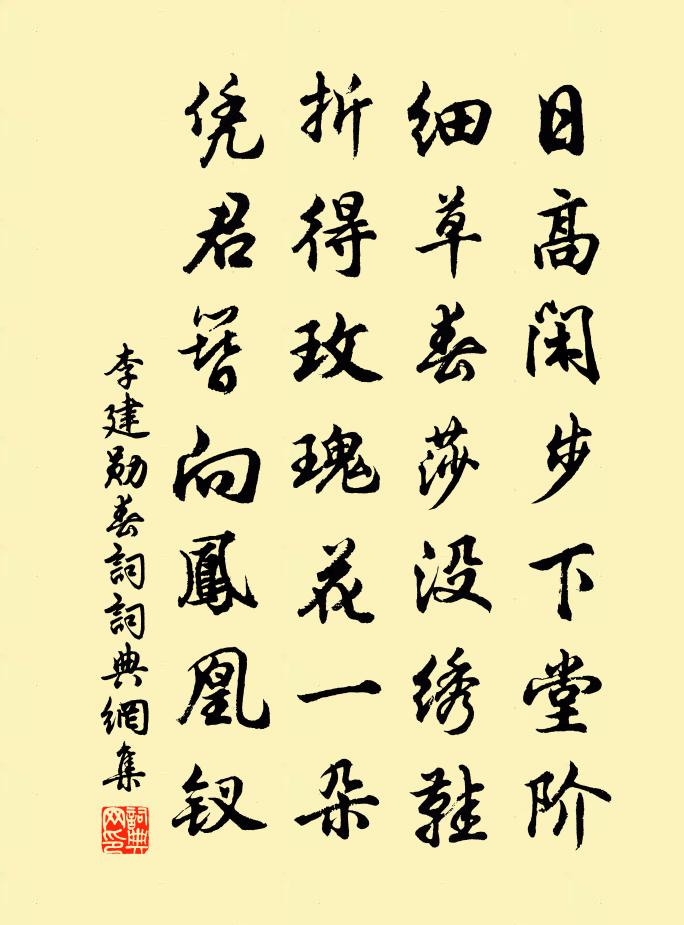 日高闲步下堂阶
细草春莎没绣鞋
折得玫瑰花一朵
凭君簪向凤凰钗
李建勋春詞詞典網集
詞典网印